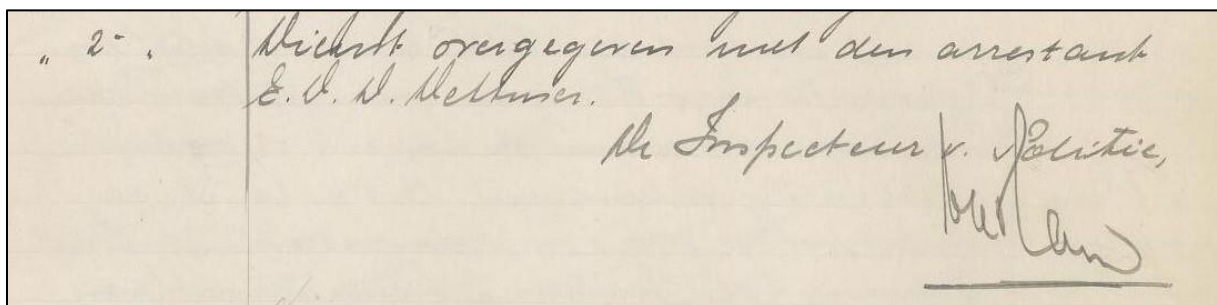 „ 2- „ Dienst overgegeven met den arrestant
E. V. D. Dettmer.
De Inspecteur v. Politie,